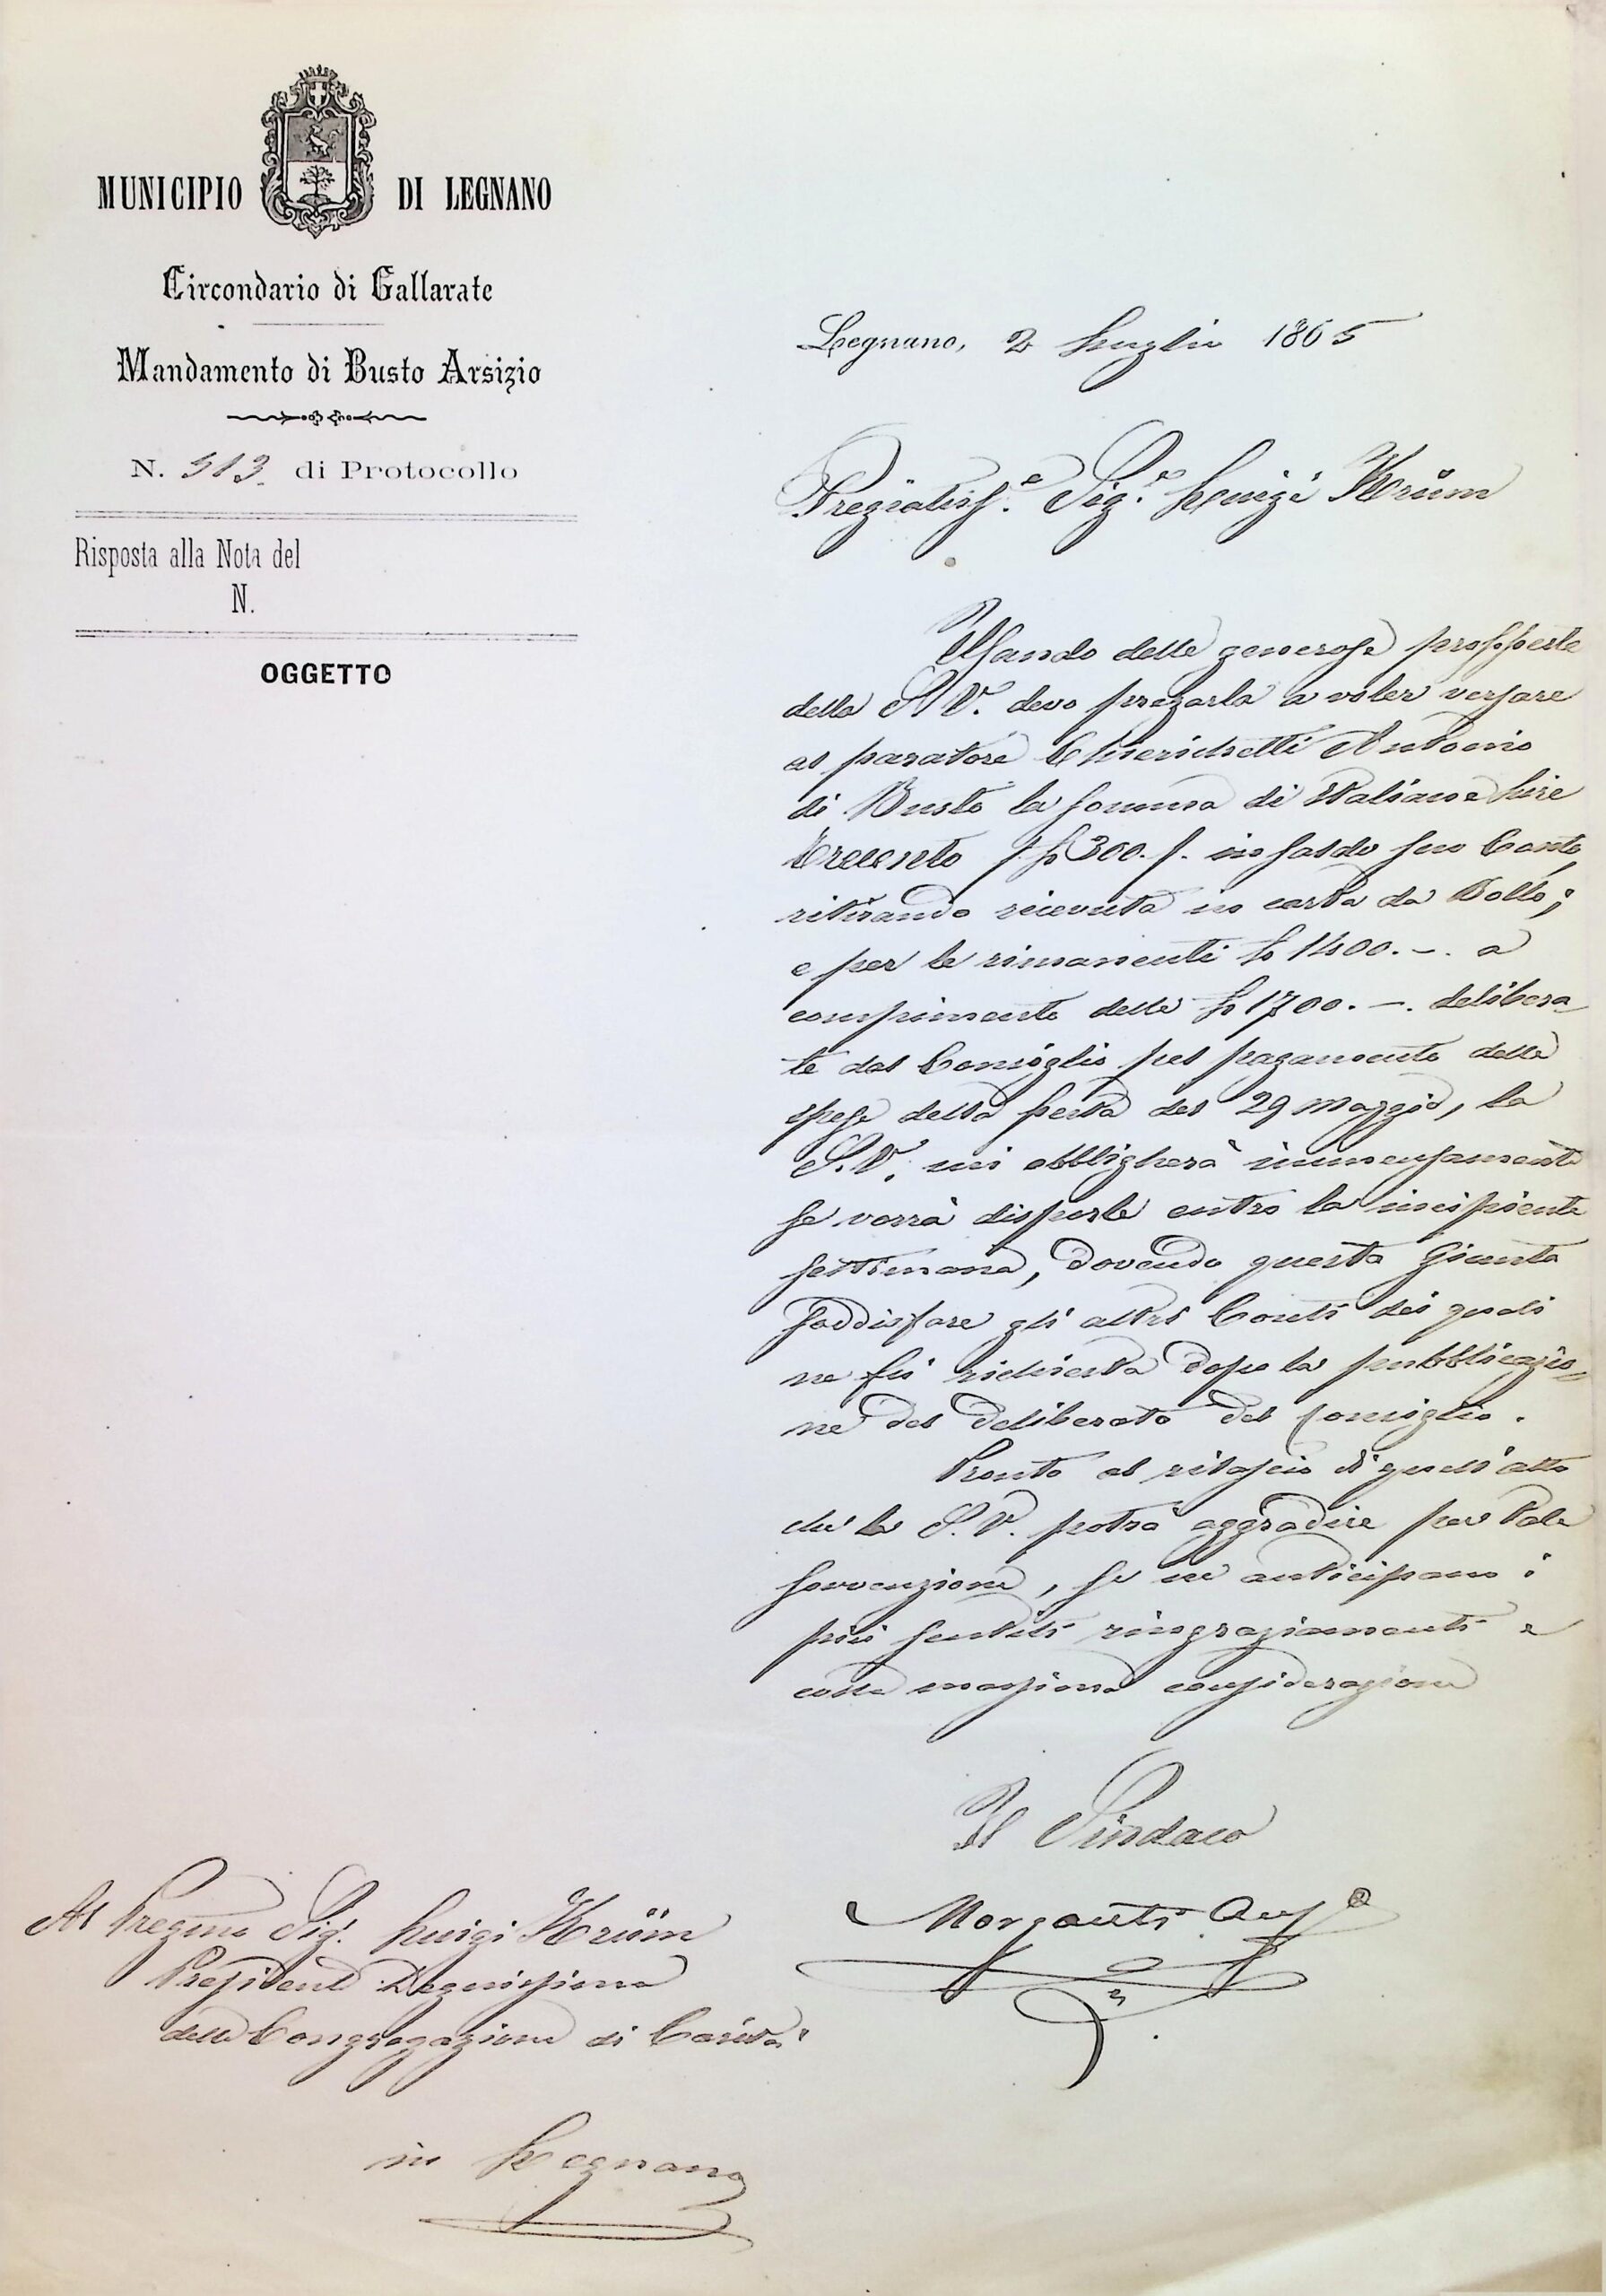 MUNICIPIO DI LEGNANO
Circondario di Gallarate
Mandamento di Busto Arsizio
N. 513. di Protocollo
Risposta alla Nota del
N.
OGGETTO
Legnano, 2 Luglio 1865
Pregiatiss.e Sig.r Luigi Krüm
Usando delle generose profferte
della S V. devo pregarla a voler versare
al paratore Chierichetti Antonio
di Busto la somma di Italiane Lire
Trecento £ 300. in saldo suo Conto,
ritirando ricevuta in carta da Bollo;
e per le rimanenti £ 1400. –. a
compimento delle £ 1700. –. delibera-
te dal Consiglio pel pagamento delle
spese della festa del 29 Maggio, la
S. V. mi obbligherà immensamente
se vorrà disporle entro la incipiente
settimana, dovendo questa Giunta
soddisfare gli altri Conti dei quali
ne fu richiesta dopo la pubblicazio-
ne del deliberato del Consiglio.
Pronto al rilascio di quell'atto
che la S. V. potrà aggradire per tale
sovvenzione, se ne anticipano i
più sentiti ringraziamenti e
colla massima considerazione
Il Sindaco
Morganti
Al Pregmo Sig. Luigi Krüm
Presidente Degnissimo
della Congregazione di Carità
in Legnano